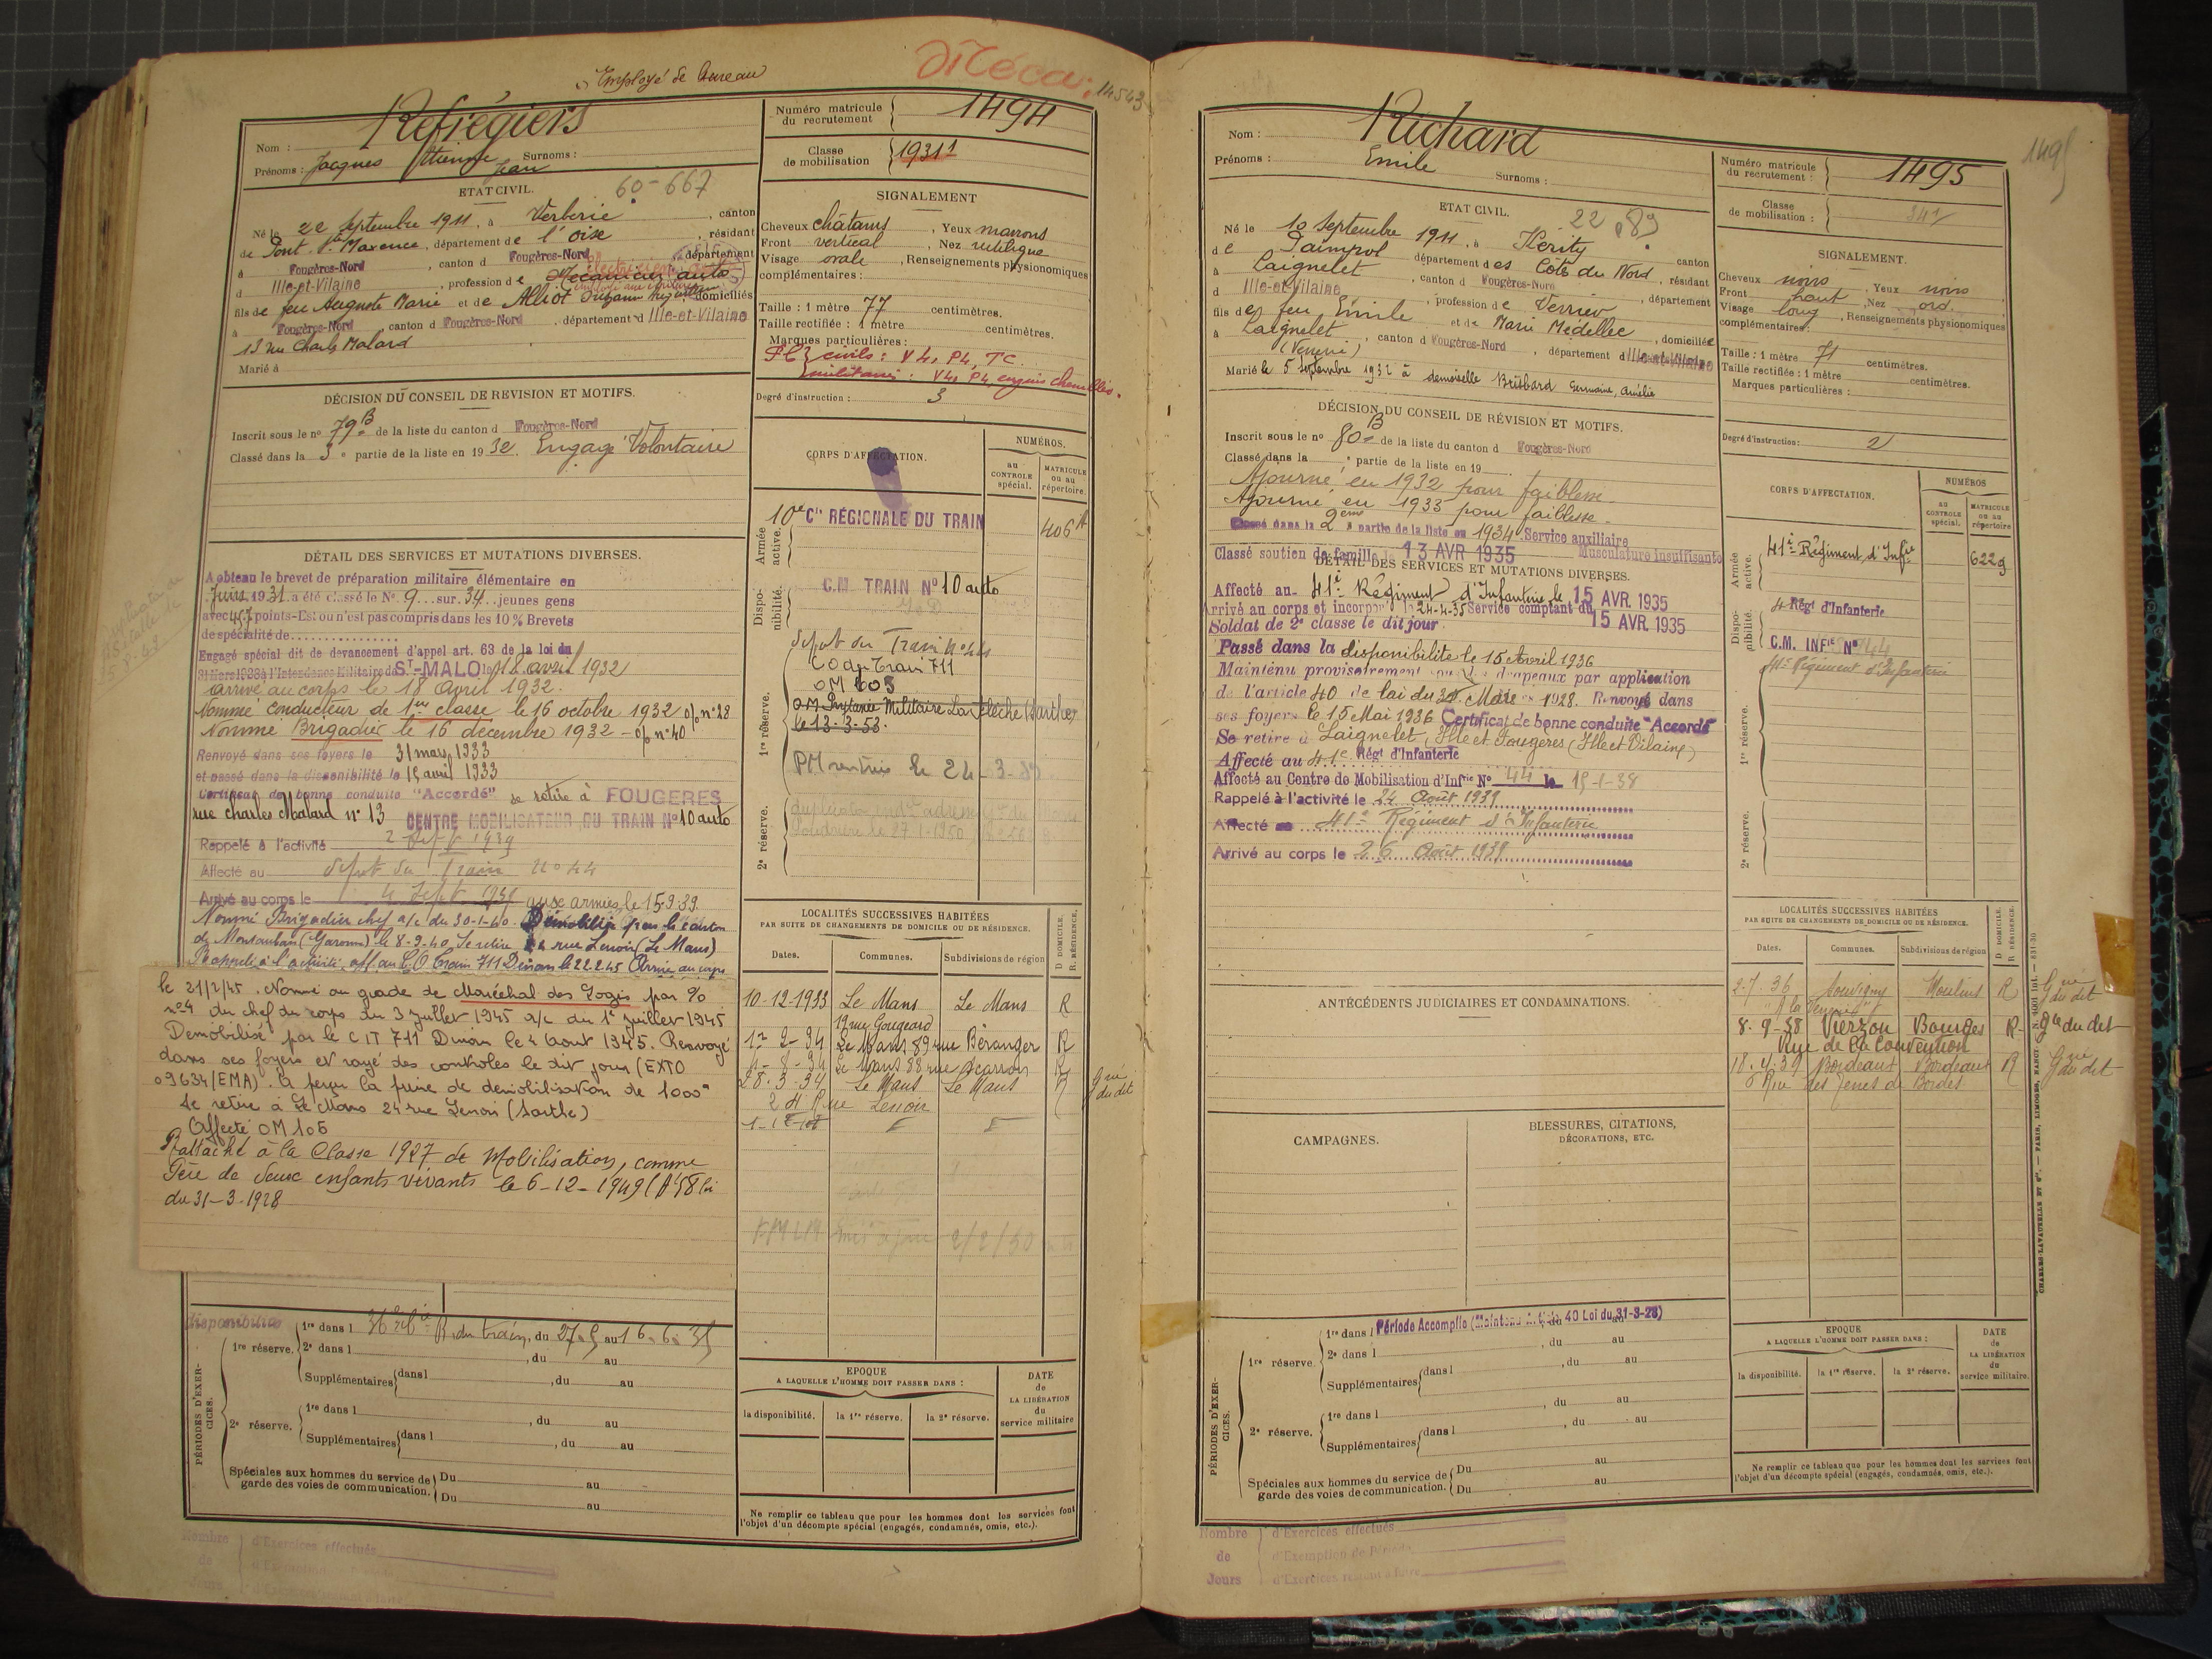 Employé de bureau
14543
Nom : Refrégiers
Prénoms : Jacques Etienne Jean Surnoms :
Numéro matricule du recrutement 1494
Classe de mobilisation 1931
ETAT CIVIL.
60-667
Né le 22 Septembre 1911, à Verberie, canton
de Pont Ste Maxence, département de l'Oise, résidant
à Fougères-Nord, canton d Fougères-Nord, département
d Ille-et-Vilaine, profession de Mécanicien auto
fils de feu Auguste Marie et de Alliot domiciliés
à Fougères-Nord, canton d Fougères-Nord, département d Ille-et-Vilaine
13 rue Charles Malard
Marié à
SIGNALEMENT
Cheveux châtains, Yeux marrons
Front vertical, Nez rectiligne
Visage ovale, Renseignements physionomiques
complémentaires :
Taille : 1 mètre 77 centimètres.
Taille rectifiée : 1 mètre centimètres.
Marques particulières :
civils : V4, P4, TC.
militaires : V4, P4, engins chenillés.
Degré d'instruction : 3
DÉCISION DU CONSEIL DE REVISION ET MOTIFS.
Inscrit sous le n° 79 B de la liste du canton d Fougères-Nord
Classé dans la 3e partie de la liste en 1932. Engagé Volontaire
DÉTAIL DES SERVICES ET MUTATIONS DIVERSES.
A obtenu le brevet de préparation militaire élémentaire en
Juin 1931 a été classé le N° 9 sur 34 jeunes gens
avec points-Est ou n'est pas compris dans les 10% Brevets
de spécialité de
Engagé spécial dit de devancement d'appel art. 63 de la loi du
31 Mars 1928 à l'Intendance Militaire de ST-MALO le 18 avril 1932
arrivé au corps le 18 avril 1932.
Nommé conducteur de 1ère classe le 16 octobre 1932 o/o n° 28
Nommé Brigadier le 16 décembre 1932 - o/o n° 40
Renvoyé dans ses foyers le 31 mars 1933
et passé dans la disponibilité le 15 avril 1933
Certificat de bonne conduite "Accordé" se retire à FOUGERES
rue Charles Malard n° 13 CENTRE MOBILISATEUR DU TRAIN N° 10 auto
Rappelé à l'activité 2 Sept 1939
Affecté au dépôt du Train n° 44
Arrivé au corps le 4 Sept 1939 aux armées le 15.9.39
Nommé Brigadier chef a/c du 30-1-40. Démobilisé par le canton
de Montauban (Garonne) le 8-9-40. Se retire 24 rue Lenoir (Le Mans)
Rappelé à l'activité, aff. au C.O Train 711 Dinan le 22.2.45 Arrivé au corps
le 21/2/45. Nommé au grade de Maréchal des Logis par %
n°4 du chef du corps du 3 juillet 1945 a/c du 1er juillet 1945
Démobilisé par le CIT 711 Dinan le 2 Aout 1945. Renvoyé
dans ses foyers et rayé des contrôles le dit jour (EXTO
09634/EMA). A perçu la prime de démobilisation de 1000
Se retire à Le Mans 24 rue Lenoir (Sarthe)
Affecté OM 105
Rattaché à la Classe 1927 de Mobilisation, comme
Père de deux enfants vivants le 6-12-1949 (A 58 loi
du 31-3-1928
CORPS D'AFFECTATION.
NUMÉROS.
au CONTROLE spécial.
MATRICULE ou au répertoire.
Armée active.
10e Cie RÉGIONALE DU TRAIN
406
Disponibilité.
C.M. TRAIN N° 10 auto
1re réserve.
dépôt du Train n° 44
CO du Train 711
OM 605
OM Prytanée Militaire La Flèche (Sarthe)
le 13-3-53.
PM rentrée le 24-3-
2e réserve.
LOCALITÉS SUCCESSIVES HABITÉES
PAR SUITE DE CHANGEMENTS DE DOMICILE OU DE RÉSIDENCE.
Dates. Communes. Subdivisions de région D DOMICILE. R. RÉSIDENCE.
10-12-1933 Le Mans Le Mans R
12 rue Gougeard
1er-2-34 Le Mans 89 rue Béranger R
1-8-34 Le Mans 88 rue Scarron R
28.3.34 Le Mans Le Mans R
24 Rue Lenoir
PÉRIODES D'EXERCICES.
disponibilité
1re réserve. 1re dans l R. du train, du 27.5 au 16.6.35
2e dans l , du au
Supplémentaires dans l , du au
2e réserve. 1re dans l , du au
Supplémentaires dans l , du au
Spéciales aux hommes du service de garde des voies de communication. Du au
Du au
EPOQUE
A LAQUELLE L'HOMME DOIT PASSER DANS :
la disponibilité. la 1re réserve. la 2e réserve.
DATE de LA LIBÉRATION du service militaire
Ne remplir ce tableau que pour les hommes dont les services font
l'objet d'un décompte spécial (engagés, condamnés, omis, etc.).
Nombre de Jours
d'Exercices effectués
1495
Nom : Richard
Prénoms : Emile Surnoms :
Numéro matricule du recrutement : 1495
Classe de mobilisation : 34
ETAT CIVIL.
22 89
Né le 10 Septembre 1911, à Kérity, canton
de Paimpol département des Côtes du Nord, résidant
à Laignelet, canton d Fougères-Nord, département
d Ille-et-Vilaine, profession de Verrier
fils de feu Emile et de Marie Medellec, domiciliés
à Laignelet, canton d Fougères-Nord, département d Ille-et-Vilaine
(Verrerie)
Marié le 5 septembre 1932 à demoiselle Brisbard Germaine, Amélie
SIGNALEMENT.
Cheveux noirs, Yeux noirs
Front haut, Nez ord.
Visage long, Renseignements physionomiques
complémentaires :
Taille : 1 mètre 71 centimètres.
Taille rectifiée : 1 mètre centimètres.
Marques particulières :
Degré d'instruction : 2
DÉCISION DU CONSEIL DE RÉVISION ET MOTIFS.
Inscrit sous le n° 80 B de la liste du canton d Fougères-Nord
Classé dans la e partie de la liste en 19
Ajourné en 1932 pour faiblesse.
Ajourné en 1933 pour faiblesse.
Classé dans la 2ème partie de la liste en 1934. Service auxiliaire
Classé soutien de famille le 13 AVR 1935 Musculature insuffisante
DÉTAIL DES SERVICES ET MUTATIONS DIVERSES.
Affecté au 41e Régiment d'Infanterie le 15 AVR. 1935
Arrivé au corps et incorporé le 24-4-35 Service comptant du 15 AVR. 1935
Soldat de 2e classe le dit jour.
Passé dans la disponibilité le 15 Avril 1936
Maintenu provisoirement sous les drapeaux par application
de l'article 40 de loi du 31 Mars 1928. Renvoyé dans
ses foyers le 15 Mai 1936 Certificat de bonne conduite "Accordé"
Se retire à Laignelet, Ille et Fougères (Ille et Vilaine)
Affecté au 41e Régt d'Infanterie
Affecté au Centre de Mobilisation d'Infrie N° 44 le 15-1-38
Rappelé à l'activité le 24 Août 1939
Affecté au 41e Régiment d'Infanterie
Arrivé au corps le 26 Août 1939
CORPS D'AFFECTATION.
NUMÉROS
au CONTROLE spécial.
MATRICULE ou au répertoire
Armée active.
41e Régiment d'Infie
6229
Disponibilité.
Régt d'Infanterie
C.M. INFIE N° 44
41e Régiment d'Infanterie
1re réserve.
2e réserve.
ANTÉCÉDENTS JUDICIAIRES ET CONDAMNATIONS.
CAMPAGNES.
BLESSURES, CITATIONS, DÉCORATIONS, ETC.
LOCALITÉS SUCCESSIVES HABITÉES
PAR SUITE DE CHANGEMENTS DE DOMICILE OU DE RÉSIDENCE.
Dates. Communes. Subdivisions de région D DOMICILE. R RÉSIDENCE.
2-7-36 Souvigny Moulins R
8-9-38 Vierzon Bourges R
Rue de la Convention
18-4-39 Bordeaux Bordeaux R
PÉRIODES D'EXERCICES.
1re réserve. 1re dans l Période Accomplie (Maintenu Article 40 Loi du 31-3-28)
2e dans l , du au
Supplémentaires dans l , du au
2e réserve. 1re dans l , du au
Supplémentaires dans l , du au
Spéciales aux hommes du service de garde des voies de communication. Du au
Du au
EPOQUE
A LAQUELLE L'HOMME DOIT PASSER DANS :
la disponibilité. la 1re réserve. la 2e réserve.
DATE de LA LIBÉRATION du service militaire.
Ne remplir ce tableau que pour les hommes dont les services font
l'objet d'un décompte spécial (engagés, condamnés, omis, etc.).
Nombre de Jours
d'Exercices effectués
d'Exemption de Période
d'Exercices restant à faire
CHARLES-LAVAUZELLE ET Cie. — PARIS, LIMOGES, NANCY.